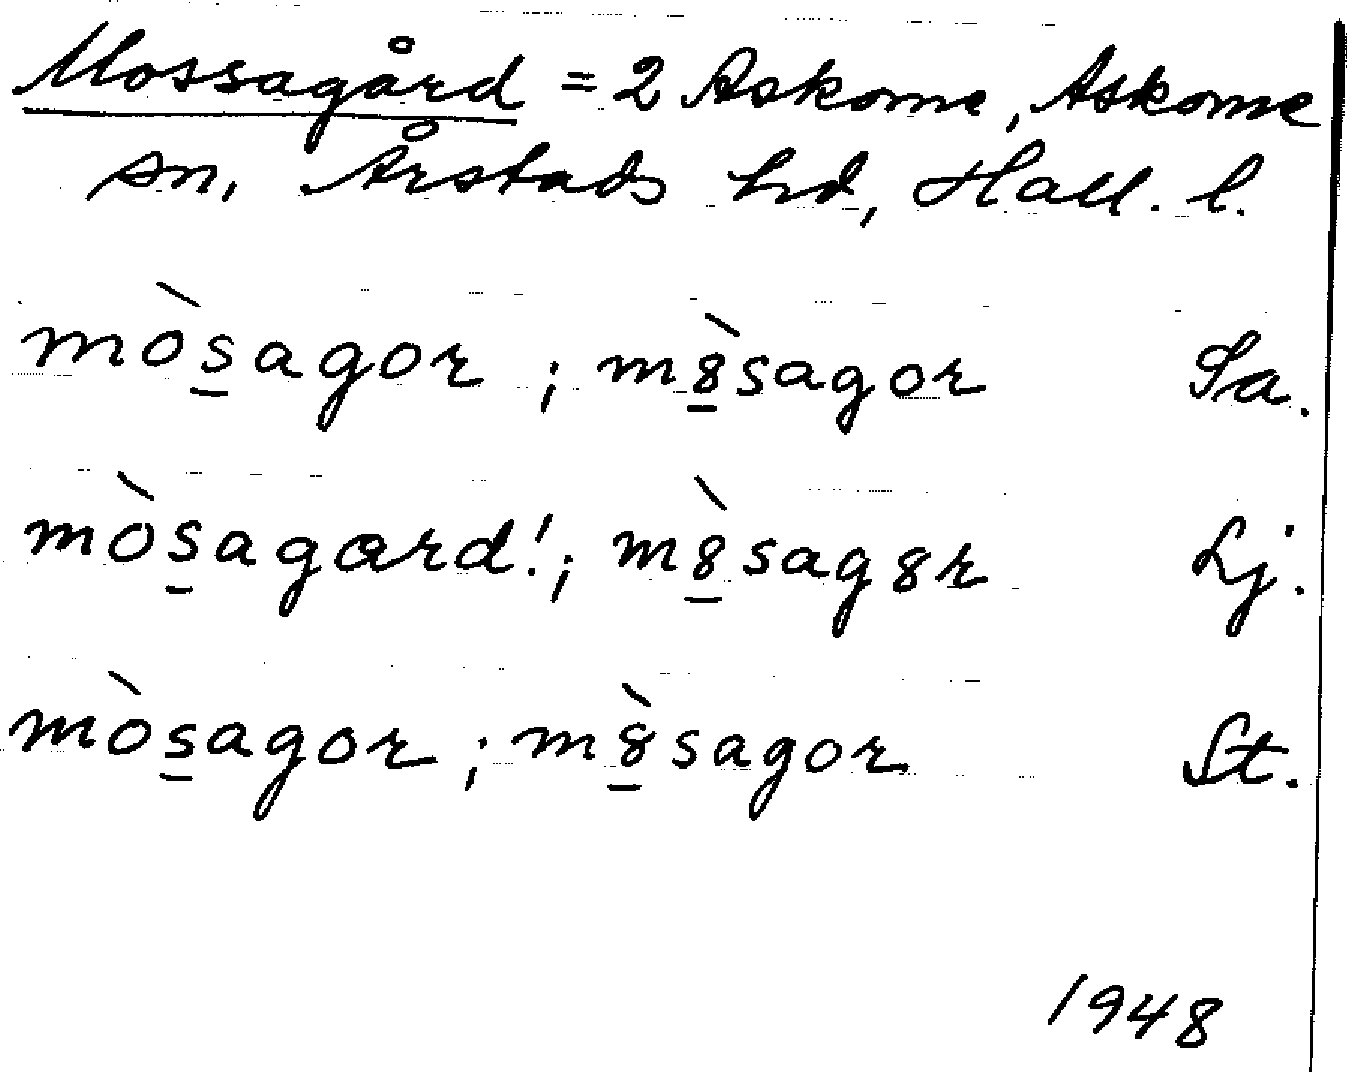 Mossagård = 2 Askome, Askome
sn, Årstads hd, Hall. l.
mòs̲agor ; m8̲̀sagor Sa.
mòs̲agard! ; m8̲̀sag8r Lj.
mòs̲agor ; m8̲̀sagor St.
1948